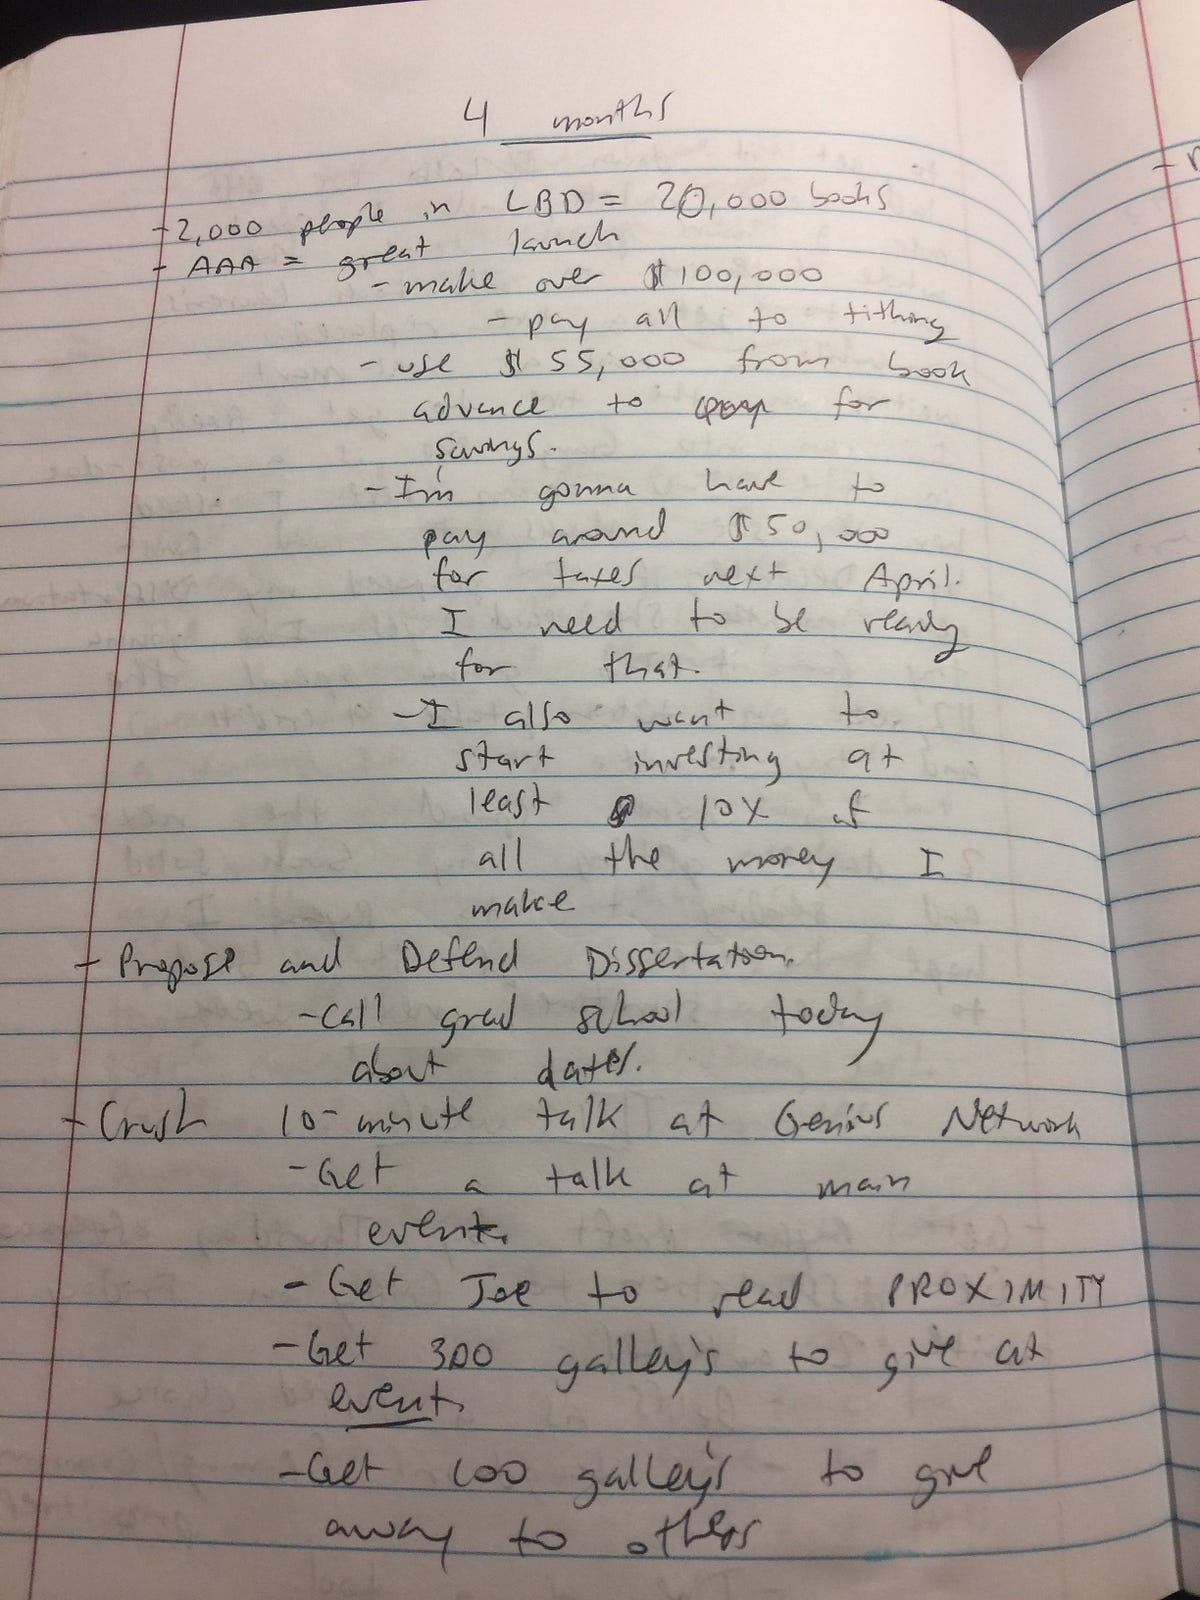 4 months
- 2,000 people in LBD = 20,000 books
- AAA = great launch
- make over $100,000
- pay all to tithing
- use $55,000 from book
advance to pay for
savings.
- I'm gonna have to
pay around $50,000
for taxes next April.
I need to be ready
for that.
- I also want to
start investing at
least 10% of
all the money I
make
- Propose and Defend Dissertation.
- Call grad school today
about dates.
- Crush 10-minute talk at Genius Network
- Get a talk at main
event.
- Get Joe to read PROXIMITY
- Get 300 galley's to give at
event.
- Get 100 galley's to give
away to others